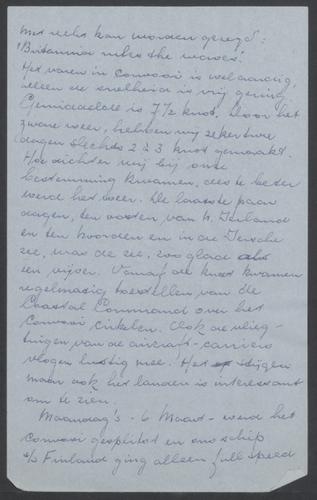 Met recht kan worden gezegd:
"Britannia rules the waves".
Het varen in Convooi is wel aardig,
alleen de snelheid is vrij gering.
Gemiddelde is 7½ knot. Door het
zware weer, hebben wij zeker twee
dagen slechts 2 à 3 knot gemaakt.
Hoe dichter wij bij onze
bestemming kwamen, des te beter
werd het weer. De laatste paar
dagen, ten oosten van N. Ierland
en ten noorden en in de Iersche
zee, was de zee, zoo glad als
een vijver. Vanaf de kust kwamen
regelmatig toestellen van de
Coastal Command over het
Convooi cirkelen. Ook de vlieg-
tuigen van de aircraft-carriers
vlogen lustig mee. Het stijgen
maar ook het landen is interessant
om te zien.
Maandag's - 6 Maart - werd het
Convooi gesplitst en ons schip
s/s Finland ging alleen full speed